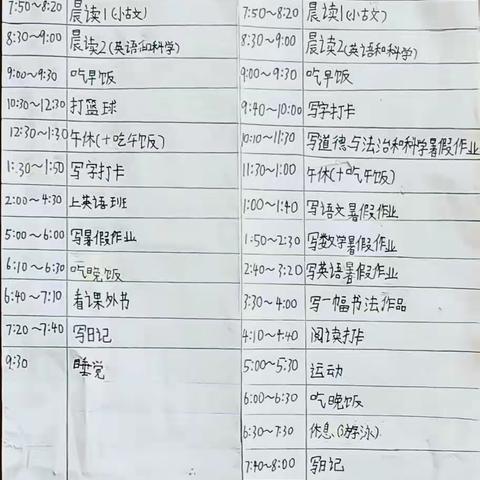 7:50~8:20 晨读1(小古文)
8:30~9:00 晨读2(英语和科学)
9:00~9:30 吃早饭
10:30~12:30 打篮球
12:30~1:30 午休(+吃午饭)
1:30~1:50 写字打卡
2:00~4:30 上英语班
5:00~6:00 写暑假作业
6:10~6:30 吃晚饭
6:40~7:10 看课外书
7:20~7:40 写日记
9:30 睡觉
7:50~8:20 晨读1(小古文)
8:30~9:00 晨读2(英语和科学)
9:00~9:30 吃早饭
9:40~10:00 写字打卡
10:10~11:30 写道德与法治和科学暑假作业
11:30~1:00 午休(+吃午饭)
1:00~1:40 写语文暑假作业
1:50~2:30 写数学暑假作业
2:40~3:20 写英语暑假作业
3:30~4:00 写一幅书法作品
4:10~4:40 阅读打卡
5:00~5:30 运动
6:00~6:30 吃晚饭
6:30~7:30 休息(游泳)
7:40~8:00 写日记